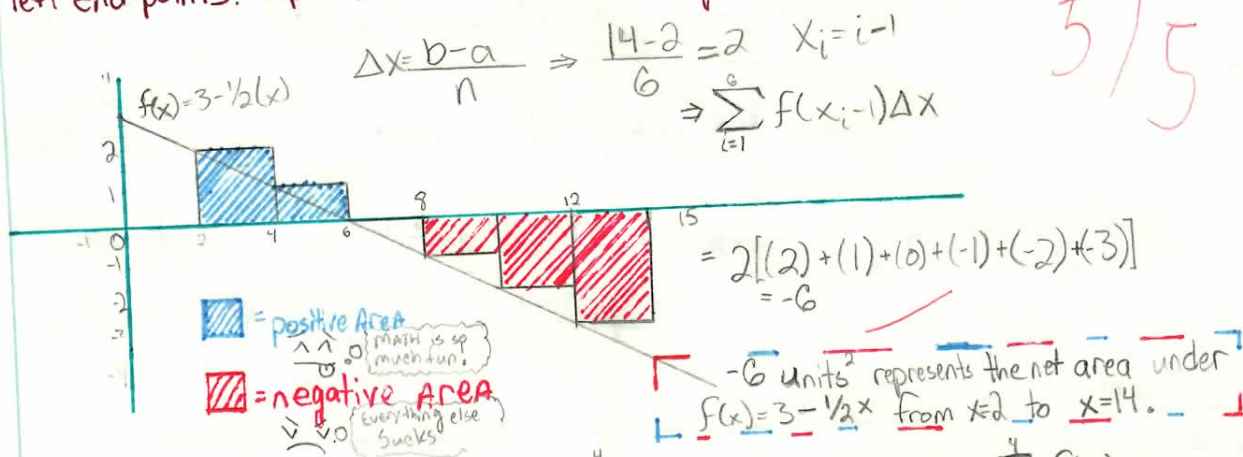 left end points.
Δx = b-a / n ⇒ 14-2 / 6 = 2 xᵢ = i-1
⇒ 6 Σ i=1 f(xᵢ-1)Δx
5/5
f(x) = 3-1/2(x)
2
1
-1 0 2 4 6 8 12 15
-1
-2
-3
= 2[(2)+(1)+(0)+(-1)+(-2)+(-3)]
= -6
= positive Area
MATH is so
much fun!
= negative Area
Everything else
Sucks
-6 units² represents the net area under
f(x) = 3-1/2x from x=2 to x=14.